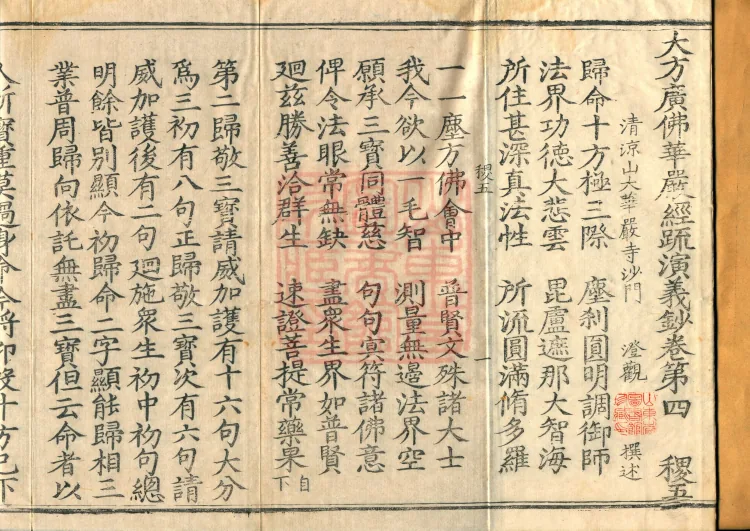 大方廣佛華嚴經疏演義鈔卷第四 稷五
清涼山大華嚴寺沙門 澄觀 撰述
歸命十方極三際 塵刹圓明調御師
法界功德大悲雲 毘盧遮那大智海
所住甚深真法性 所流圓滿脩多羅
稷五 一
一一塵方佛會中 普賢文殊諸大士
我今欲以一毛智 測量無邊法界空
願承三寶同體慈 句句冥符諸佛意
俾令法眼常無缺 盡衆生界如普賢
廻茲勝善洽群生 速證菩提常樂果 自下
第二歸敬三寶請威加護有十六句大分
爲三初有八句正歸敬三寶次有六句請
威加護後有二句廻施衆生初中初句總
明餘皆別顯今初歸命二字顯能歸相三
業普周歸向依託無盡三寶但云命者以
人所寶重莫過身命今將仰投十方已下